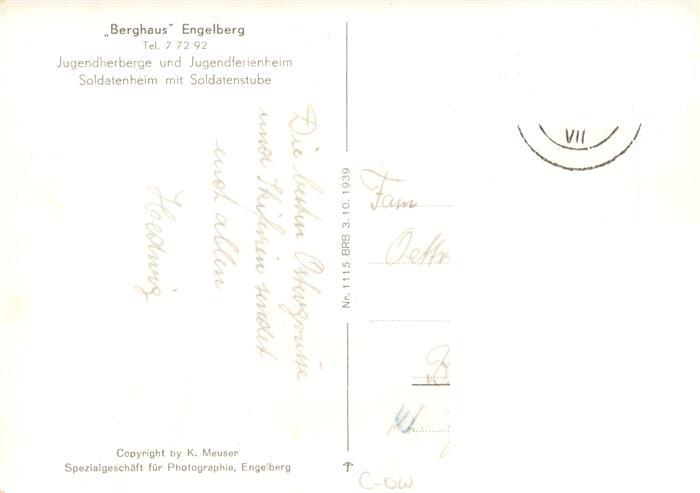 „Berghaus" Engelberg
Tel. 7 72 92
Jugendherberge und Jugendferienheim
Soldatenheim mit Soldatenstube
Die besten Ostergrüsse
und Skiferien sendet
euch allen
Hedwig
Nr. 1115 BRB 3.10.1939
Fam
VII
Copyright by K. Meuser
Spezialgeschäft für Photographie, Engelberg
C-OW